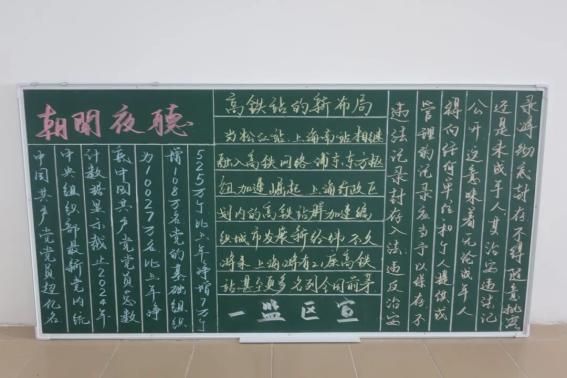 朝聞夜聽
中国共产党党员超亿名
中央组织部最新党内统
计数据显示截止2024年
底中国共产党党员总数
为10027万名比上年净
增108万名党的基础组织
525万个比上年净增7万
高铁站的新布局
当松江站、上海南站相继
融入高铁网络,浦东东方枢
纽加速崛起,上海行政区
划内的高铁站群加速编
织城市发展新经纬,不久
将来上海将有 座高铁
站甚至更多名列全国前茅
一监区宣
违法记录封存入法,违反治安
管理的记录应当予以保存不
得向任何单位和个人提供或
公开,这意味着无论成年人
还是未成年人其治安违法记
录将彻底封存不得随意批露